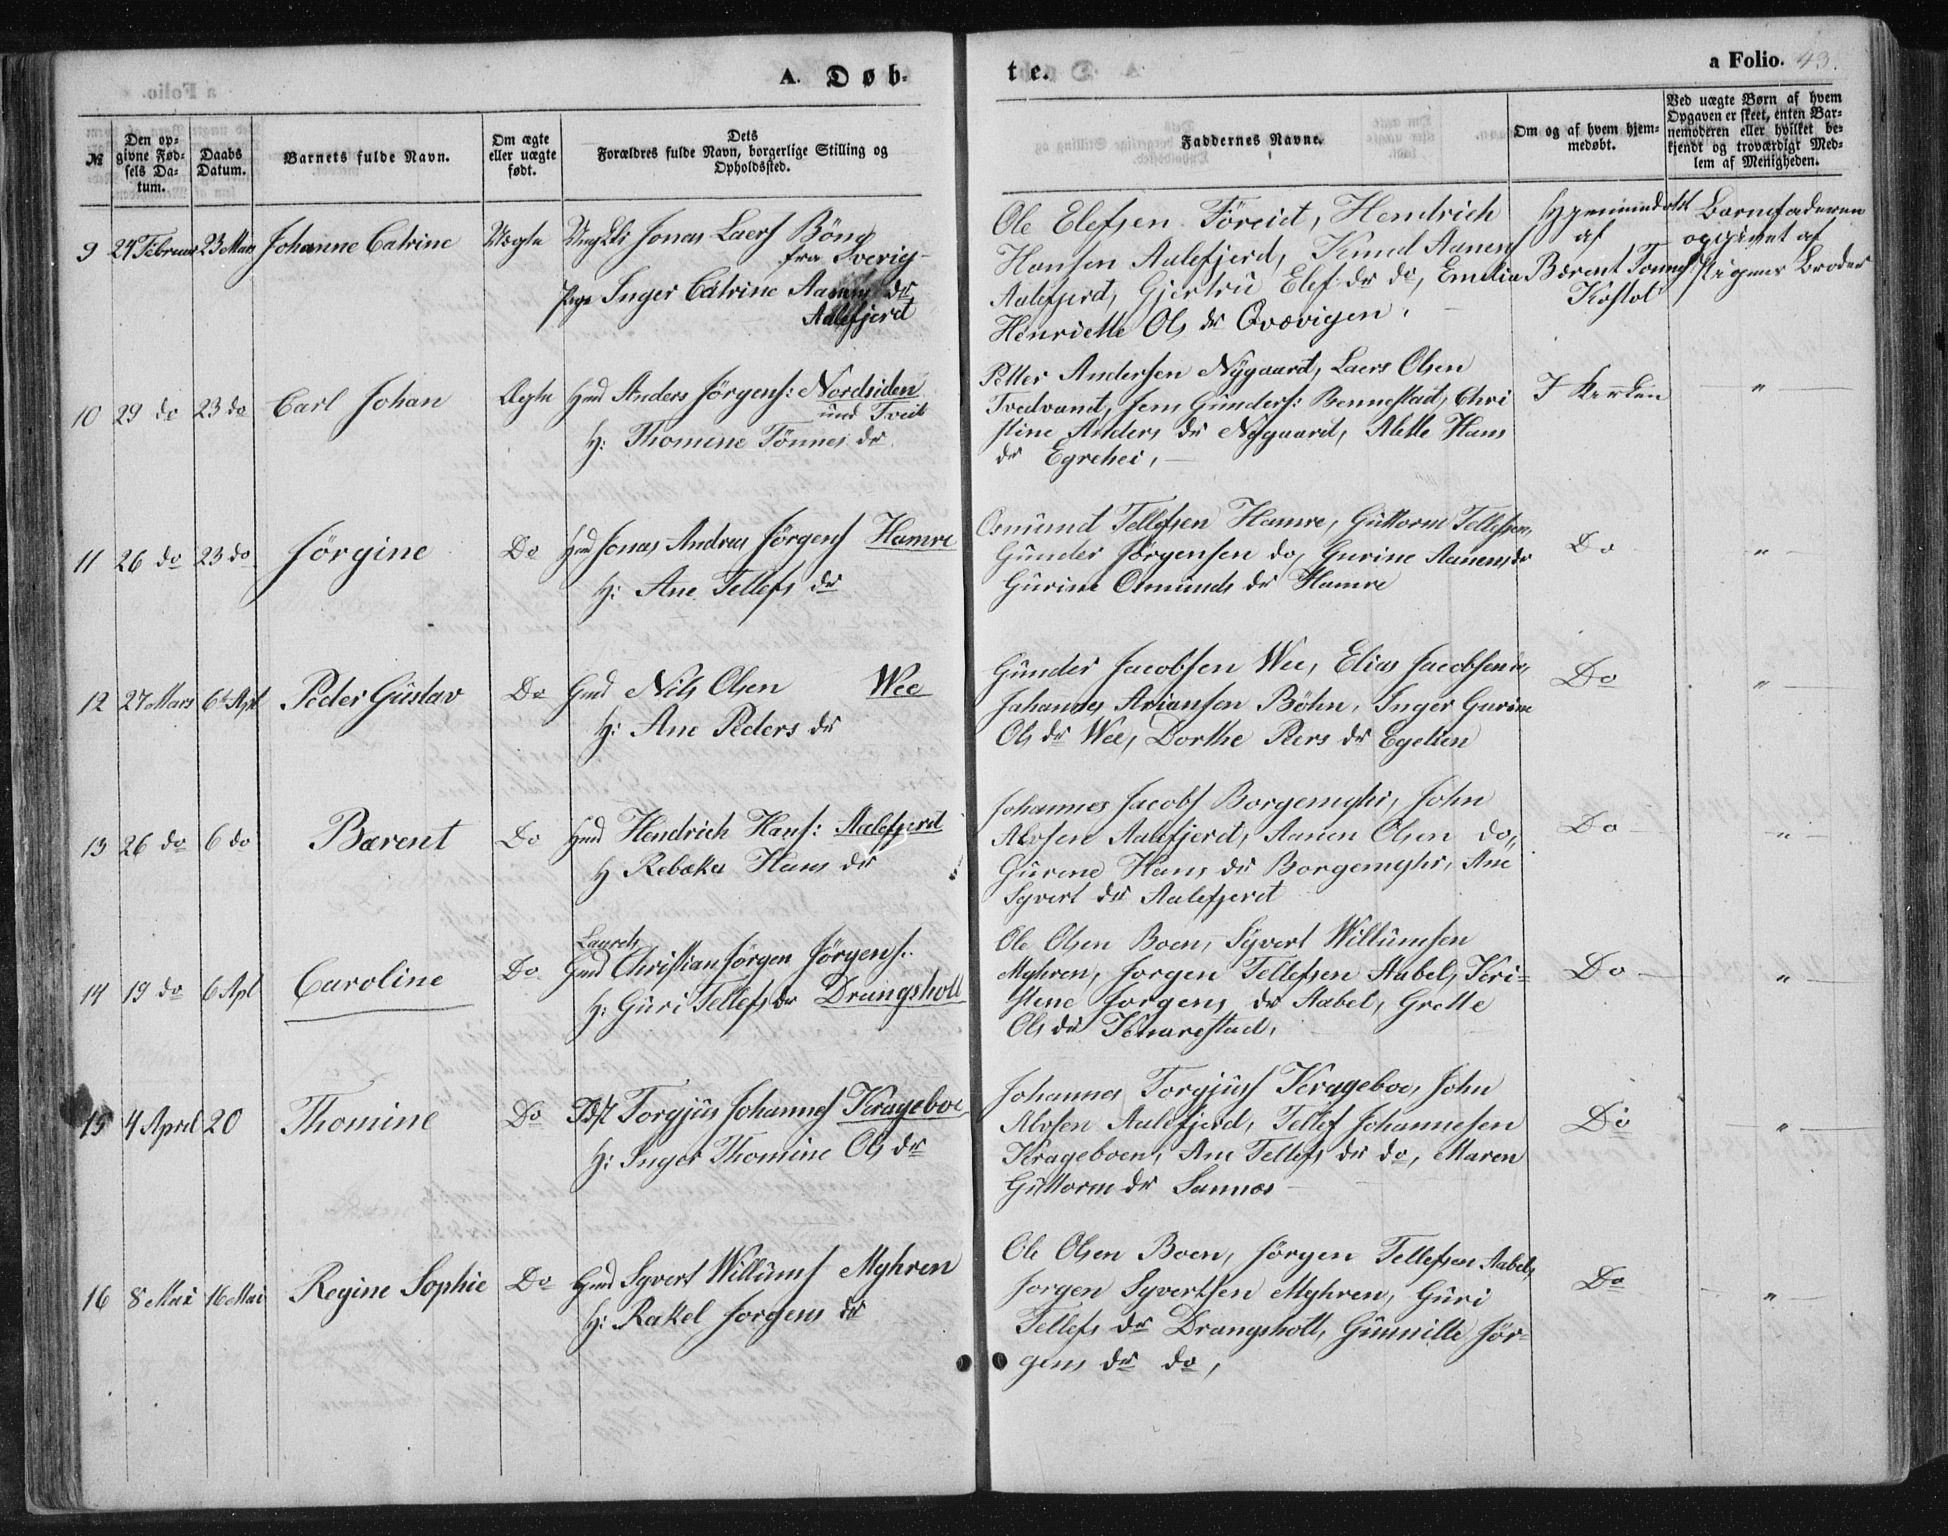 A. Døb-
te.
a Folio. 43.
№
Den op-
givne Fød-
sels Da-
tum.
Daabs
Datum.
Barnets fulde Navn.
Om ægte
eller uægte
født.
Dets
Forældres fulde Navn, borgerlige Stilling og
Opholdssted.
Faddernes Navne.
Om og af hvem hjem-
medøbt.
Ved uægte Børn af hvem
Opgaven er skeet, enten Bar-
nemoderen eller hvilket be-
kjendt og troværdigt Med-
lem af Menigheden.
9 24 Februar 23 Mars Johanne Catrine Uægte Ungkl Jonas Laers Böng
fra Sverig
Pige Inger Catrine Aanens dr
Aalefjerd
Ole Elefsen Föreid, Hendrich
Hansen Aalefjerd, Knud Aanens
Aalefjerd, Gjertru Elefs dr do, Emilia
Henriette Ols dr Qvævigen,
Hjemmedøbt
af
Bærent Tønnes
Kostøl
Barnefaderen
opgivet af
Pigens Broder
10 29 do 23 do Carl Johan Ægte Gmd Anders Jørgens: Nordsiden
und Tveit
H: Thomine Tønnes dr
Petter Andersen Nygaard, Laers Olsen
Tvedvand, Jens Gunders: Bennestad, Chri
stine Anders dr Nygaard, Alette Hans
dr Egrehei,
I Kirken
"
11 26 do 23 do Jørgine Do Gmd Jonas Andreas Jørgens Hamre
H: Ane Tellefs dr
Osmund Tellefsen Hamre, Guttorm Tellefsen,
Gunder Jørgensen do, Gurine Aanens dr
Gurine Osmunds dr Hamre
Do
"
12 27 Mars 6te Apl Peder Gustav Do Gmd Nils Olsen Wee
H: Ane Peders dr
Gunder Jacobsen Wee, Elias Jacobsen do,
Johannes Ariansen Böhn, Inger Gurine
Ols dr Wee, Dorthe Peers dr Egelien
Do
"
13 26 do 6 do Bærent Do Gmd Hendrich Hans: Aalefjerd
H Rebeka Hans dr
Johannes Jacobs Borgemyhr, John
Alofsen Aalefjerd, Aanen Olsen do,
Gurene Hans dr Borgemyhr, Ane
Syvert dr Aalefjerd
Do
"
14 19 do 6 Apl Caroline Do
Laurets
Gmd Christian Jørgen Jørgens:
H: Guri Tellefs dr Drangsholt
Ole Olsen Boen, Syvert Willumsen
Myhren, Jorgen Tellefsen Aabel, Kri-
stene Jorgens dr Aabel, Grette
Ols dr Kenarestad,
Do
"
15 4 April 20 Thomine Do Torgjus Johannes Krageboe
H: Inger Thomine Ols dr
Johannes Torgjus Krageboe, John
Alofsen Aalefjerd, Tellef Johannesen
Krageboen, Ane Tellefs dr do, Maren
Guttorm dr Sannæs
Do
"
16 8 Mai 16 Mai Regine Sophie Do Gmd Syvert Willums Myhren
H: Rakel Jorgens dr
Ole Olsen Boen, Jörgen Tellefsen Aabel,
Jorgen Syvertsen Myhren, Guri
Tellefs dr Drangsholt, Gunnille Jör-
gens dr do,
Do
"